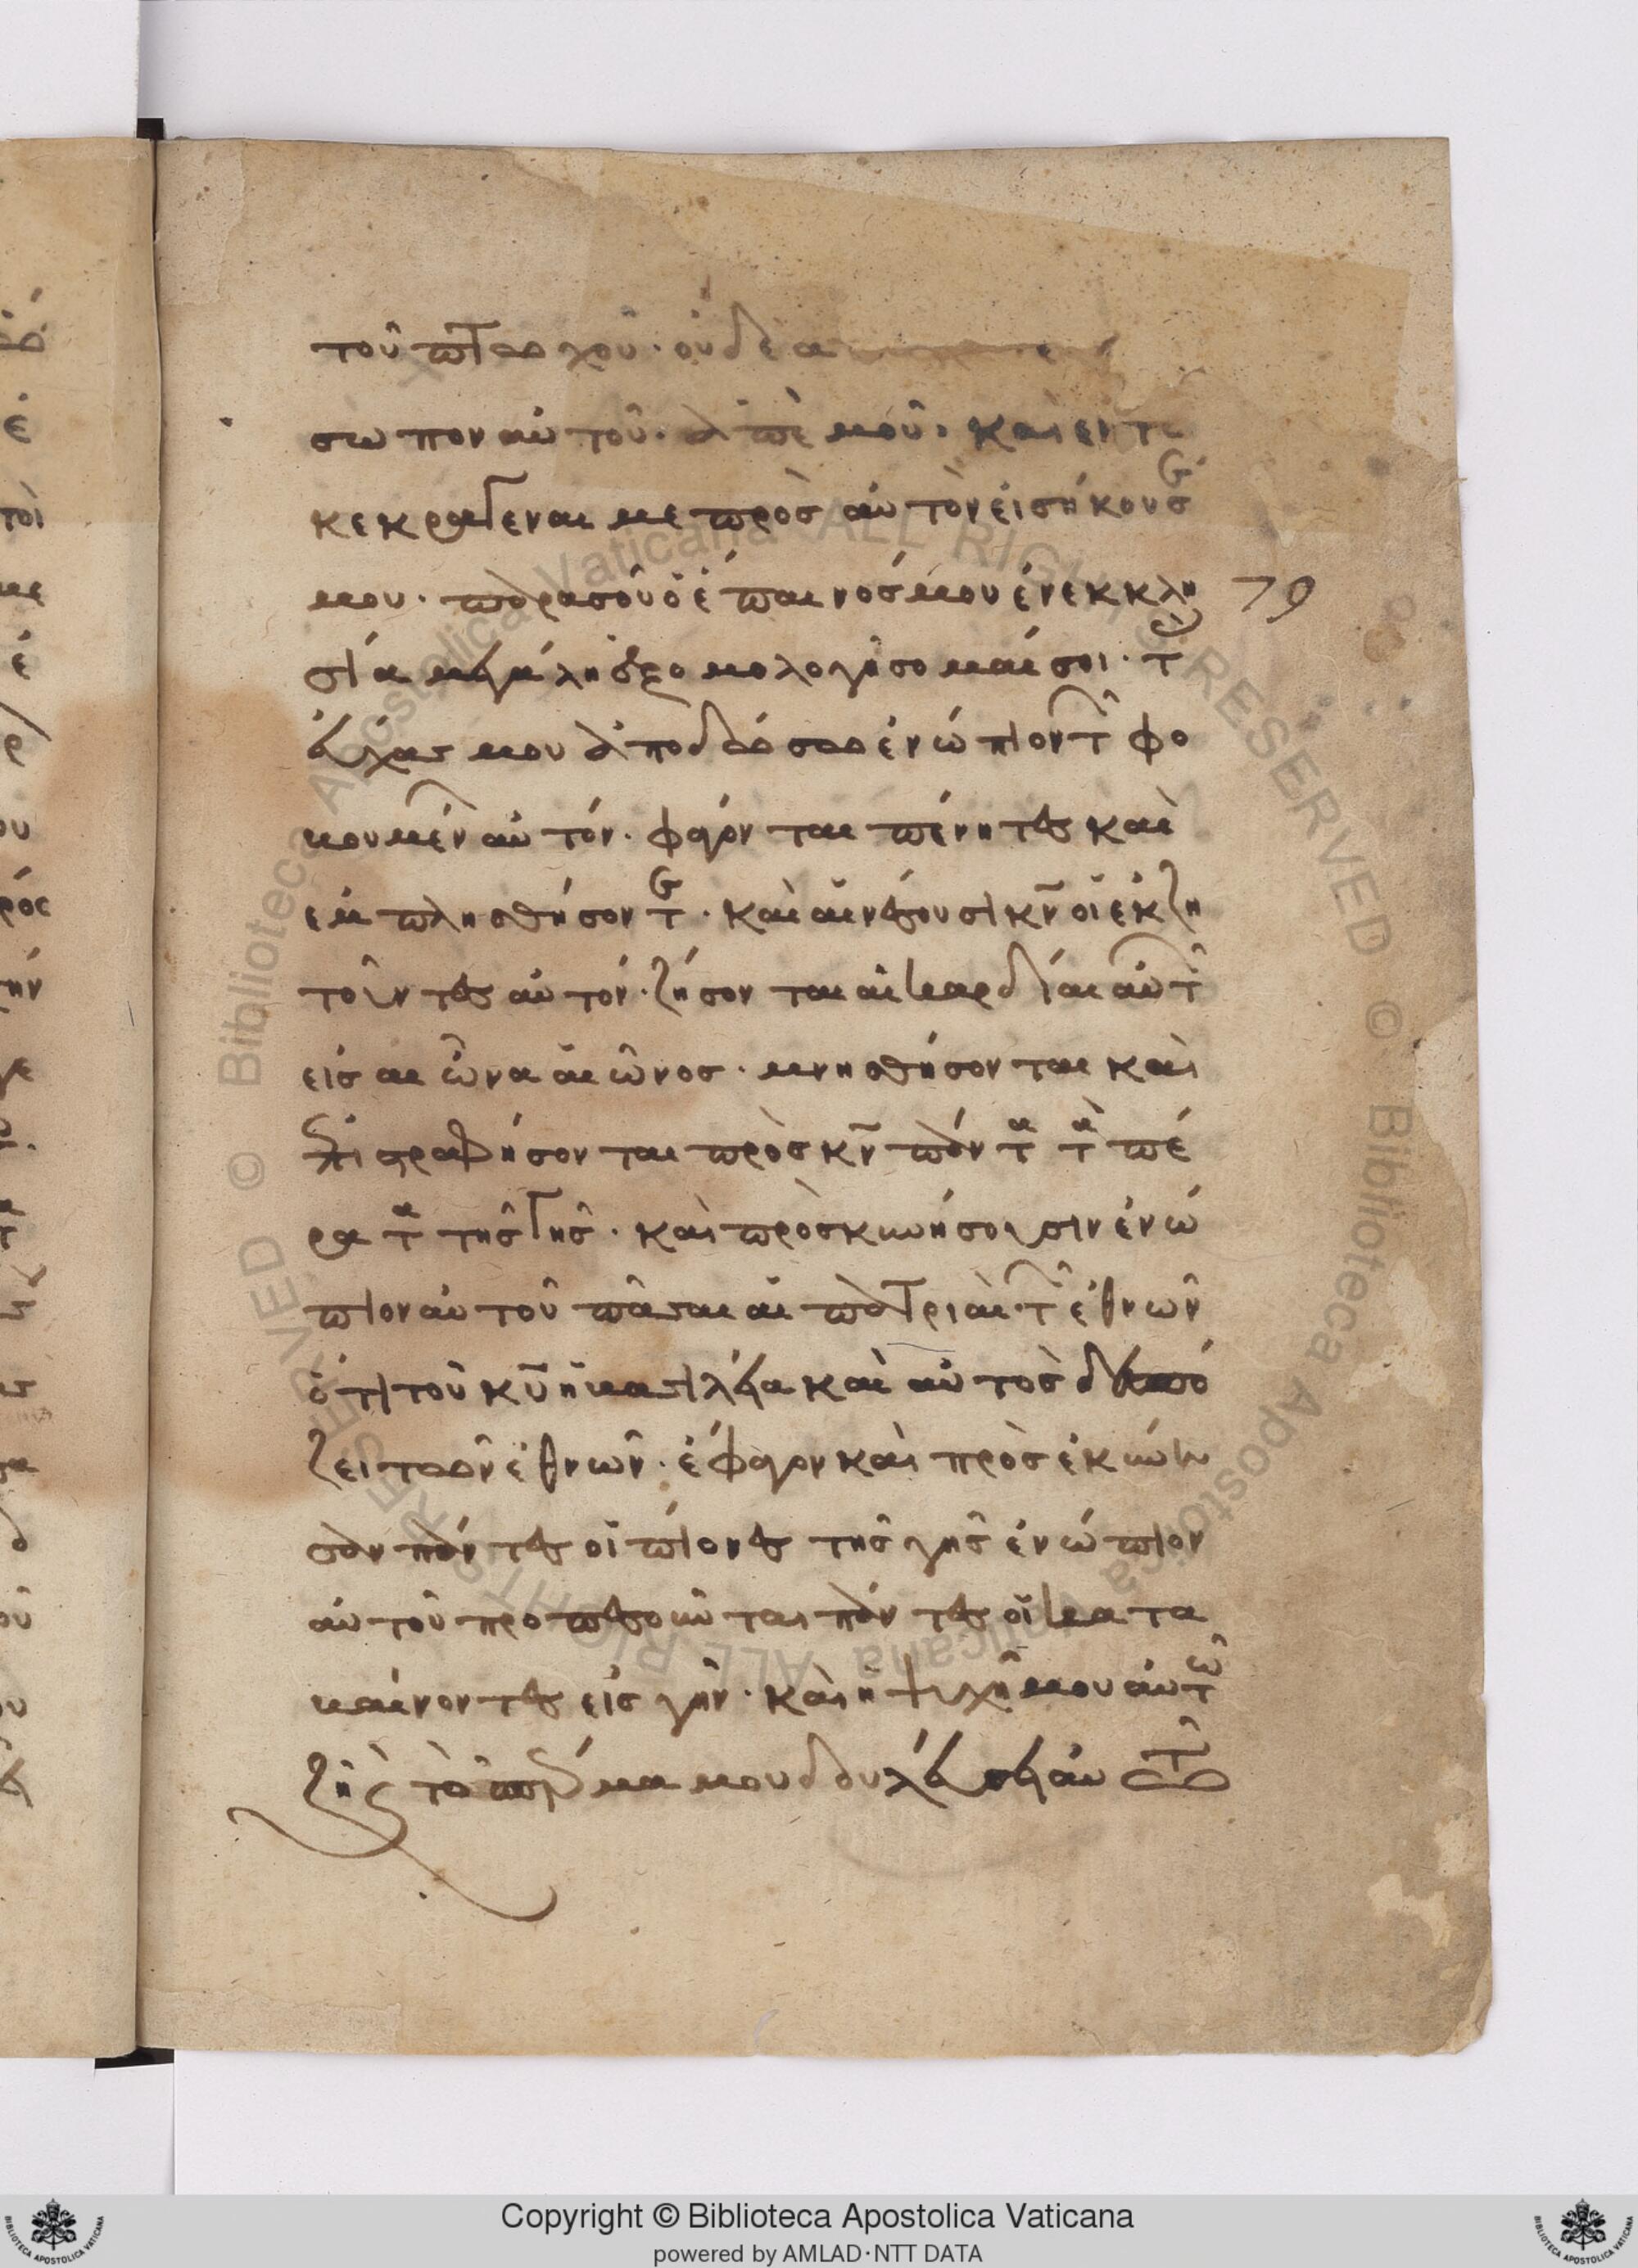 τοῦ πτωχοῦ· οὐδὲ α
σωπον αὐτοῦ· ἀπ' ἐμοῦ· καὶ ἐν τῶ
κεκραγεναι με πρὸσ αὐτὸν εἰσήκουσέ
μου· παρασοῦ ὁ ἐπαινοσ μου ἐν ἐκκλη
σία μεγάλη ἐξομολογήσομαί σοι· τ
εὐχασ μου ἀποδώσω ἐνώπιον τῶν φο
βουμένων αὐτόν· φάγονται πένητες καὶ
εμπλησθήσονται· καὶ αἰνέσουσι κν οἱ ἐκζη
τοῦντες αὐτόν· ζήσονται αἱ καρδίαι αὐτῶν
εἰσ αἰῶνα αἰῶνοσ· μνησθήσονται καὶ
ἐπιστραφήσονται πρὸσ κν πάντα τὰ πέ
ρατα τῆσ γῆσ· καὶ πρὸσκυνήσουσιν ἐνώ
πιον αὐτοῦ πᾶσαι αἱ πατριαὶ· τῶν ἐθνῶν
ὅτι τοῦ κυ ἡ βασιλεία καὶ αὐτὸσ δεσπό
ζει τῶν ἐθνῶν· ἐφαγον καὶ πρὸσἐκύνη
σαν πάντες οἱ πίονες τῆσ γῆσ ἐνώπιον
αὐτοῦ προπεσοῦνται πάντες οἱ κατα
βαίνοντες εἰσ γῆν· καὶ ἡ ψυχή μου αὐτῶ
ζῆ καὶ τὸ σπέρμα μου δουλεύσει αὐτῶ
79
Copyright © Biblioteca Apostolica Vaticana
powered by AMLAD·NTT DATA